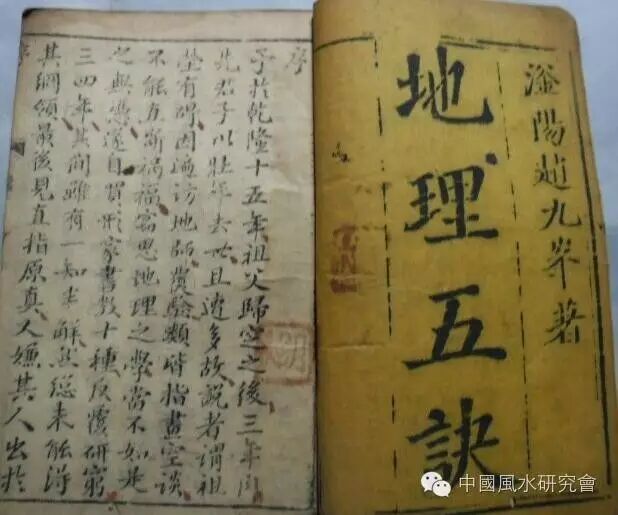 滏陽趙九峯著
地理五訣
序
予於乾隆十五年祖父歸窆之後三年內
先君子以壯年去世且連多故説者謂祖
塋有碍因遍访地師覆驗類皆指畫空談
不能直斷禍福窃思地理之學當不如是
之無憑遂自買形家書数十種反復研窮
三四年其間雖有一知半解然總未能得
其綱領最後見直指原真又嫌其人出於
中國風水研究會